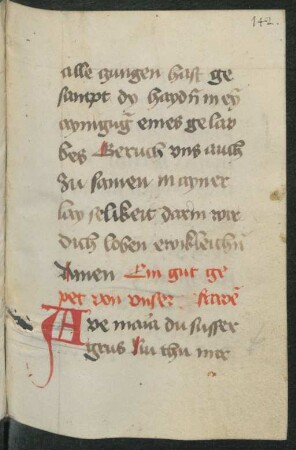 142.
alle zungen hast ge
sampt dy haydn̄ in ey
aynigug̃ eines gelau
bes Beruch vns auch
zu samen in ayner
lay selikeit darin wir
dich loben ewikleichn̄
Amen Ein gut ge
pet von vnser frawē
Ave maria du susser
grus